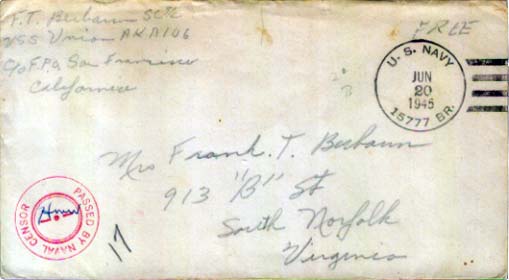 F. T. Berbaum SC 3/c
USS Union AKA 106
c/o F.P.O. San Francisco
California
FREE
U. S. NAVY
JUN
20
1945
15777 BR.
Mrs Frank. T. Berbaum
913 "B" St
South Norfolk
Virginia
PASSED BY NAVAL CENSOR
17